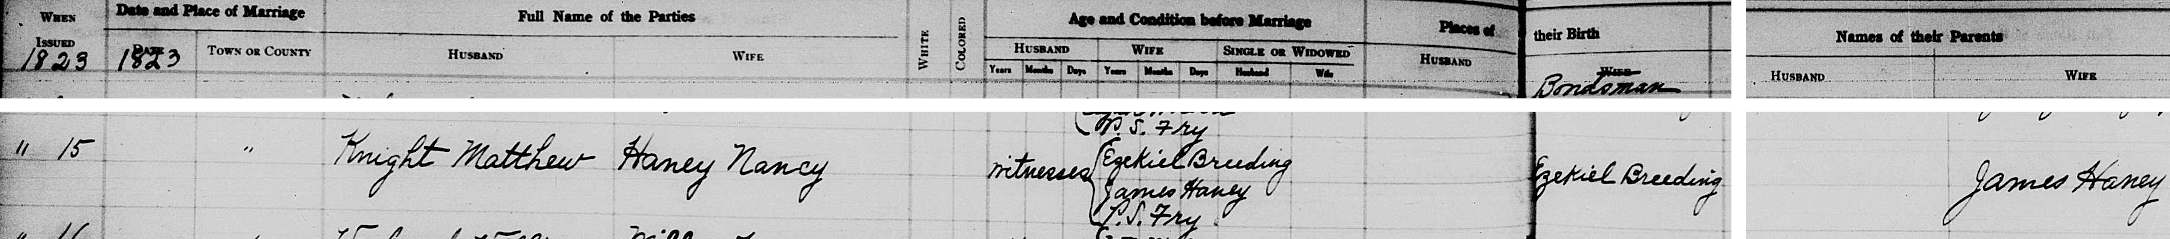 WHEN ISSUED 1823
Date and Place of Marriage
DATE 1823
TOWN OR COUNTY
Full Name of the Parties
HUSBAND
WIFE
WHITE
COLORED
Age and Condition before Marriage
HUSBAND
WIFE
SINGLE OR WIDOWED
Years Months Days Years Months Days Husband Wife
Places of their Birth
HUSBAND
WIFE
Bondsman
Names of their Parents
HUSBAND
WIFE
P. S. Fry
" 15 " Knight Matthew Haney Nancy witnesses Ezekiel Breeding
James Haney
P. S. Fry
Ezekiel Breeding
James Haney
" 16